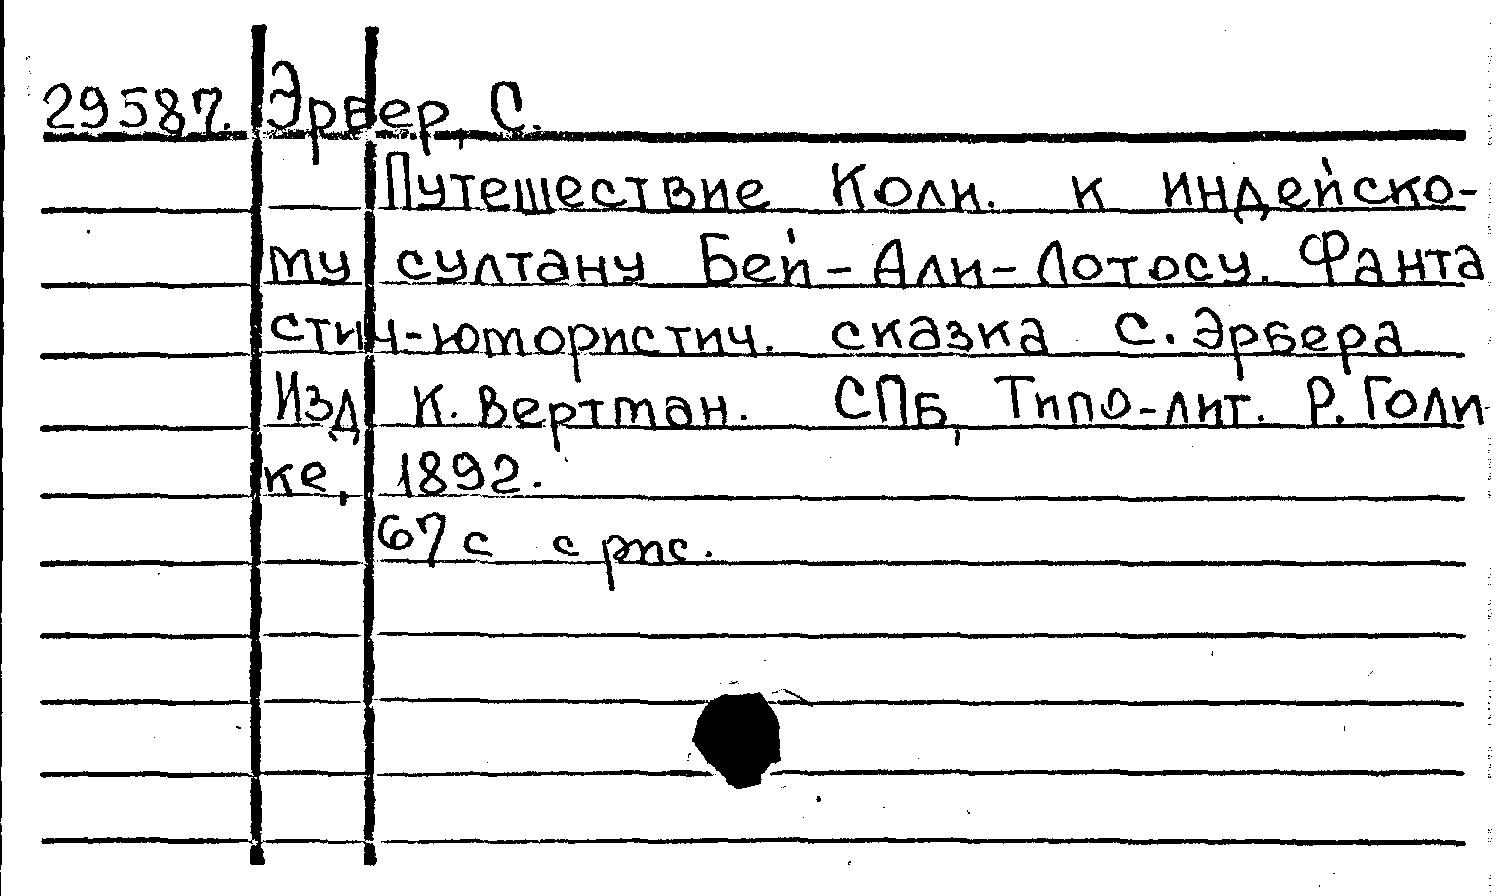 29587. Эрбер, С.
Путешествие Коли. к индейско-
му султану Бей-Али-Лотосу. Фанта
стич-юмористич. сказка С. Эрбера
Изд К. Вертман. СПБ, Типо-лит. Р. Голи
ке, 1892.
67 с с рис.